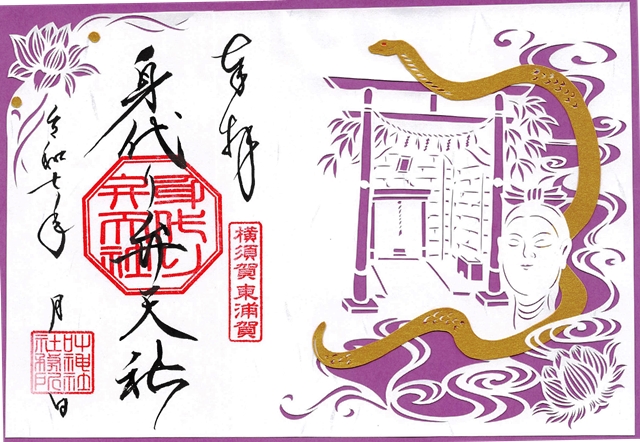 奉拝
横須賀東浦賀
身代り弁天社
身代り弁天社
令和七年 月 日
叶神社社務所